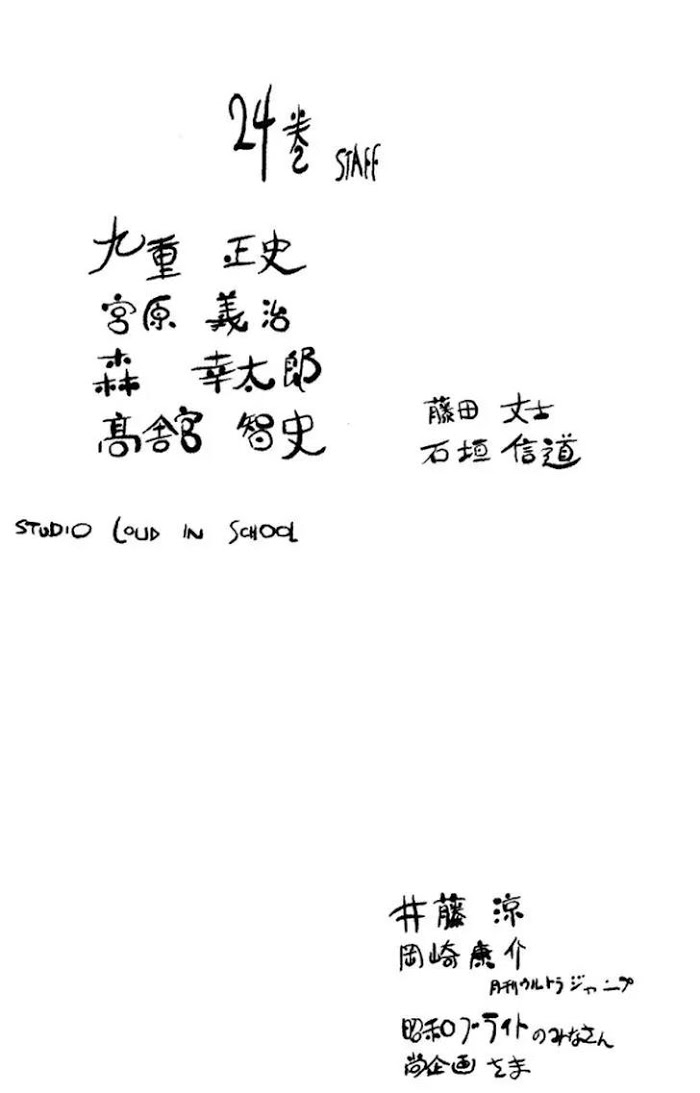 24巻 STAFF
九重 正史
宮原 義治
森 幸太郎
髙舘宮 智史
藤田 丈士
石垣 信道
STUDIO LOUD IN SCHOOL
井藤 涼
岡崎 康介
月刊ウルトラジャンプ
昭和ブライトのみなさん
尚企画 さま